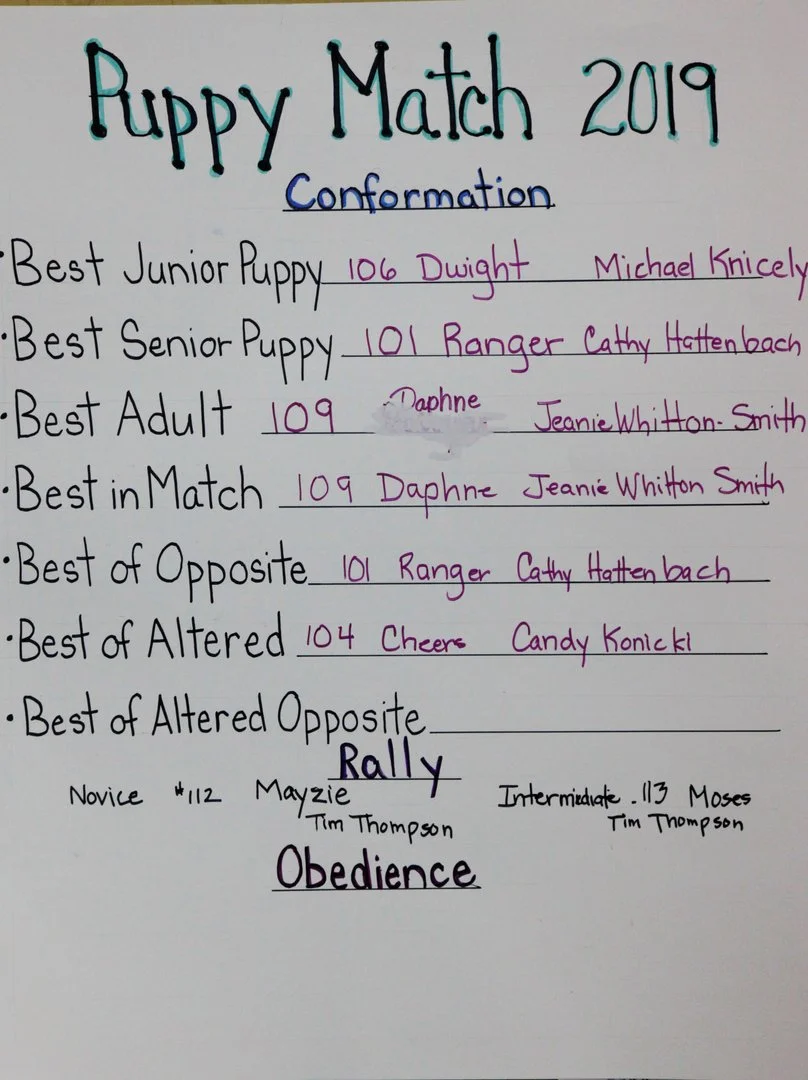 Puppy Match 2019
Conformation
· Best Junior Puppy 106 Dwight Michael Knicely
· Best Senior Puppy 101 Ranger Cathy Hattenbach
· Best Adult 109 Daphne Jeanie Whitton-Smith
· Best in Match 109 Daphne Jeanie Whitton Smith
· Best of Opposite 101 Ranger Cathy Hattenbach
· Best of Altered 104 Cheers Candy Konicki
· Best of Altered Opposite
Rally
Novice #112 Mayzie Intermediate . 113 Moses
Tim Thompson Tim Thompson
Obedience